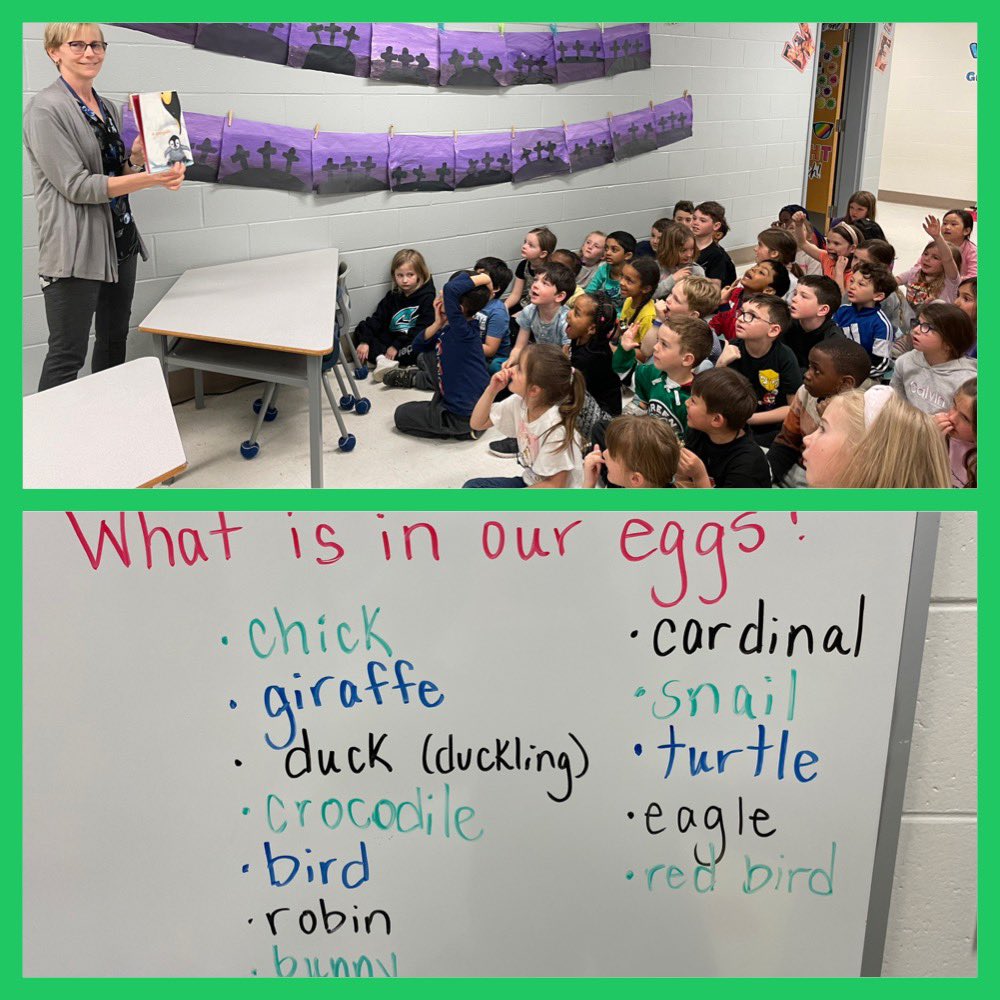 What is in our eggs?
• chick
• giraffe
• duck (duckling)
• crocodile
• bird
• robin
• bunny
• cardinal
• snail
• turtle
• eagle
• red bird